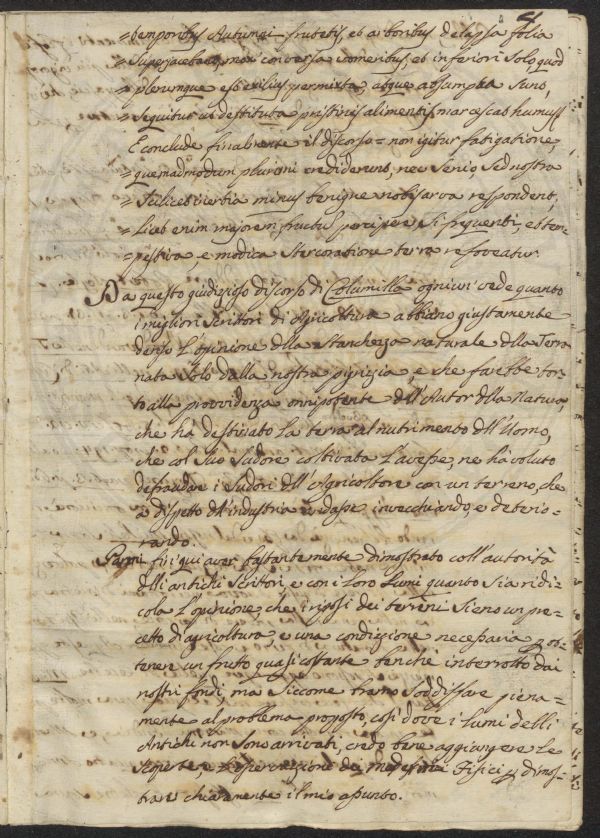 4
= temporibus Autumni frutetis, et arboribus delapsa folia
= superjacebant, mox conversa vomeribus, et inferiori solo, quod
= plerumque est exilius permixta, atque absumpta sunt,
= sequitur ut destituta pristinis alimentis marcescat humus
E conclude finalmente il discorso = non igitur fatigatione,
= quemadmodum plurimi crediderunt, nec senio, sed nostra
= scilicet inertia minus benigne nobis arva respondent,
= Licet enim majorem fructum percipere, si frequenti, et tem=
= pestiva, e modica stercoratione terra refoveatur.
Da questo giudizioso discorso di Columella ognun vede quanto
i migliori Scrittori di Agricoltura abbiano giustamente
deriso l'opinione della stanchezza naturale della Terra
nata solo dalla nostra pigrizia, e che farebbe tor=
to alla providenza onnipotente dell'Autor della Natura,
che ha destinato la terra al nutrimento dell'Uomo,
che col suo sudore coltivata l'avesse, ne ha voluto
defraudare i sudori dell'Agricoltore con un terreno, che
a dispetto dell'industria andasse invecchiando, e deterio=
rando.
Parmi fin qui aver bastantemente dimostrato coll'autorità
dell'antichi Scrittori, e con i loro lumi quanto sia ridi=
cola l'opinione, che i riposi dei terreni sieno un pre=
cetto di agricoltura, e una condizione necessaria p ot=
tenere un frutto quasi costante benchè interrotto dai
nostri fondi, ma siccome bramo soddisfare piena=
mente al problema proposto, così dove i lumi delli
Antichi non sono arrivati, credo bene aggiungere le
scoperte, e l'osservazione dei moderni Fisici p dimos=
trare chiaramente il mio assunto.